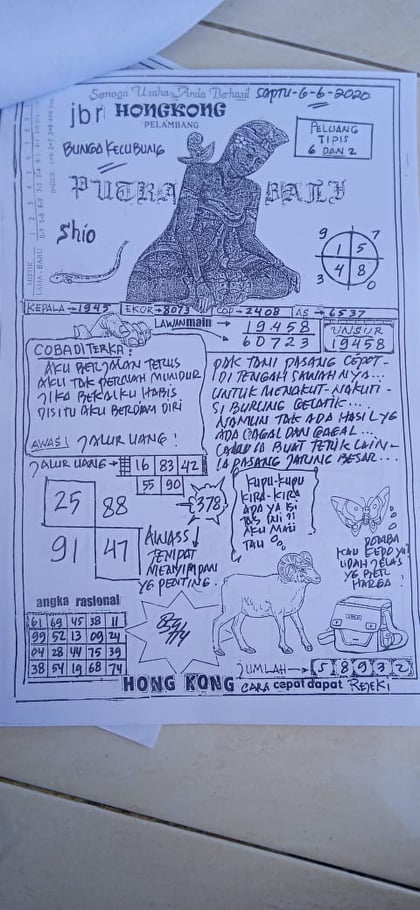 Semoga Usaha Anda Berhasil SAPTU-6-6-2020
jbr HONGKONG
PELAMBANG
BUNGA KECUBUNG
PELUANG
TIPIS
6 DAN 2
PUTRA BALI
Shio
9 7
1 5
4 8
3 0
KEPALA→1945 EKOR→8073 COP→2408 AS→6537
LAWANmain → 19458
60723
UNSUR
19458
COBA DITERKA:
AKU BERJALAN TERUS
AKU TAK PERNAH MUNDUR
JIKA BEKALKU HABIS
DISITU AKU BERDIAM DIRI
AWAS! JALUR UANG!
PAK TANI PASANG CEPOT-
DI TENGAH SAWAHNYA...
UNTUK MENAKUT-NAKUTI-
SI BURUNG GELATIK...
NAMUN TAK ADA HASILYG
ADA GAGAL DAN GAGAL...
LAIN-
IA PASANG JARING BESAR...
JALUR UANG→ 16 83 42
55 90
25 88
91 47
378
AWASS↓
TEMPAT
MENYIMPAN
YG PENTING.
KUPU-KUPU
KIRA-KIRA
APA YA ISI
TAS INI ??
AKU MAU
TAU
DOMBA
KAU KEPO YA!
UDAH JELAS
YG
HARGA!
angka rasional
61 69 45 38 11
99 52 13 09 24
04 28 44 75 39
38 54 19 68 74
JUMLAH→ 5 8 9 3 2
HONG KONG CARA cepat dapat REJEKI